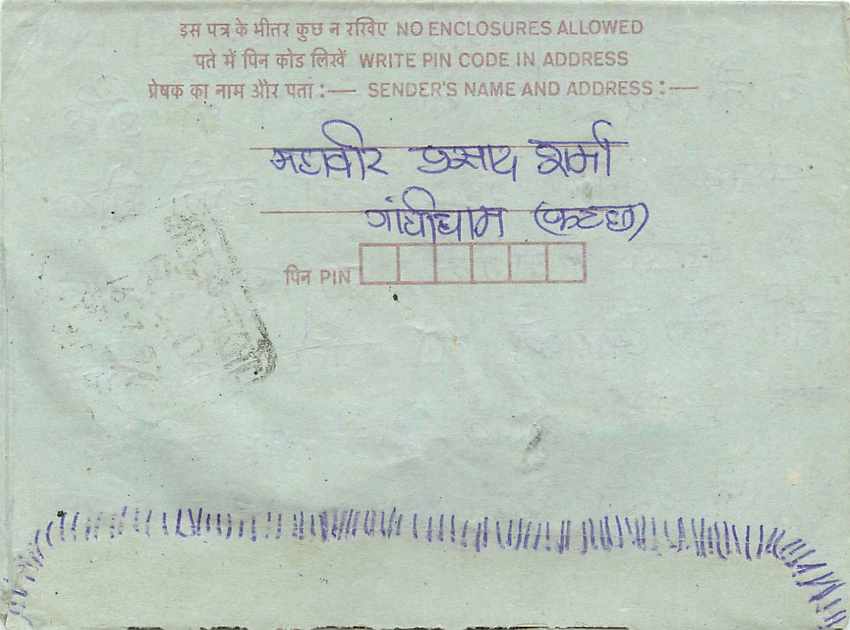 इस पत्र के भीतर कुछ न रखिए NO ENCLOSURES ALLOWED
पते में पिन कोड लिखें WRITE PIN CODE IN ADDRESS
प्रेषक का नाम और पता :— SENDER'S NAME AND ADDRESS :—
महावीर प्रसाद शर्मा
गांधीधाम (कच्छ)
पिन PIN